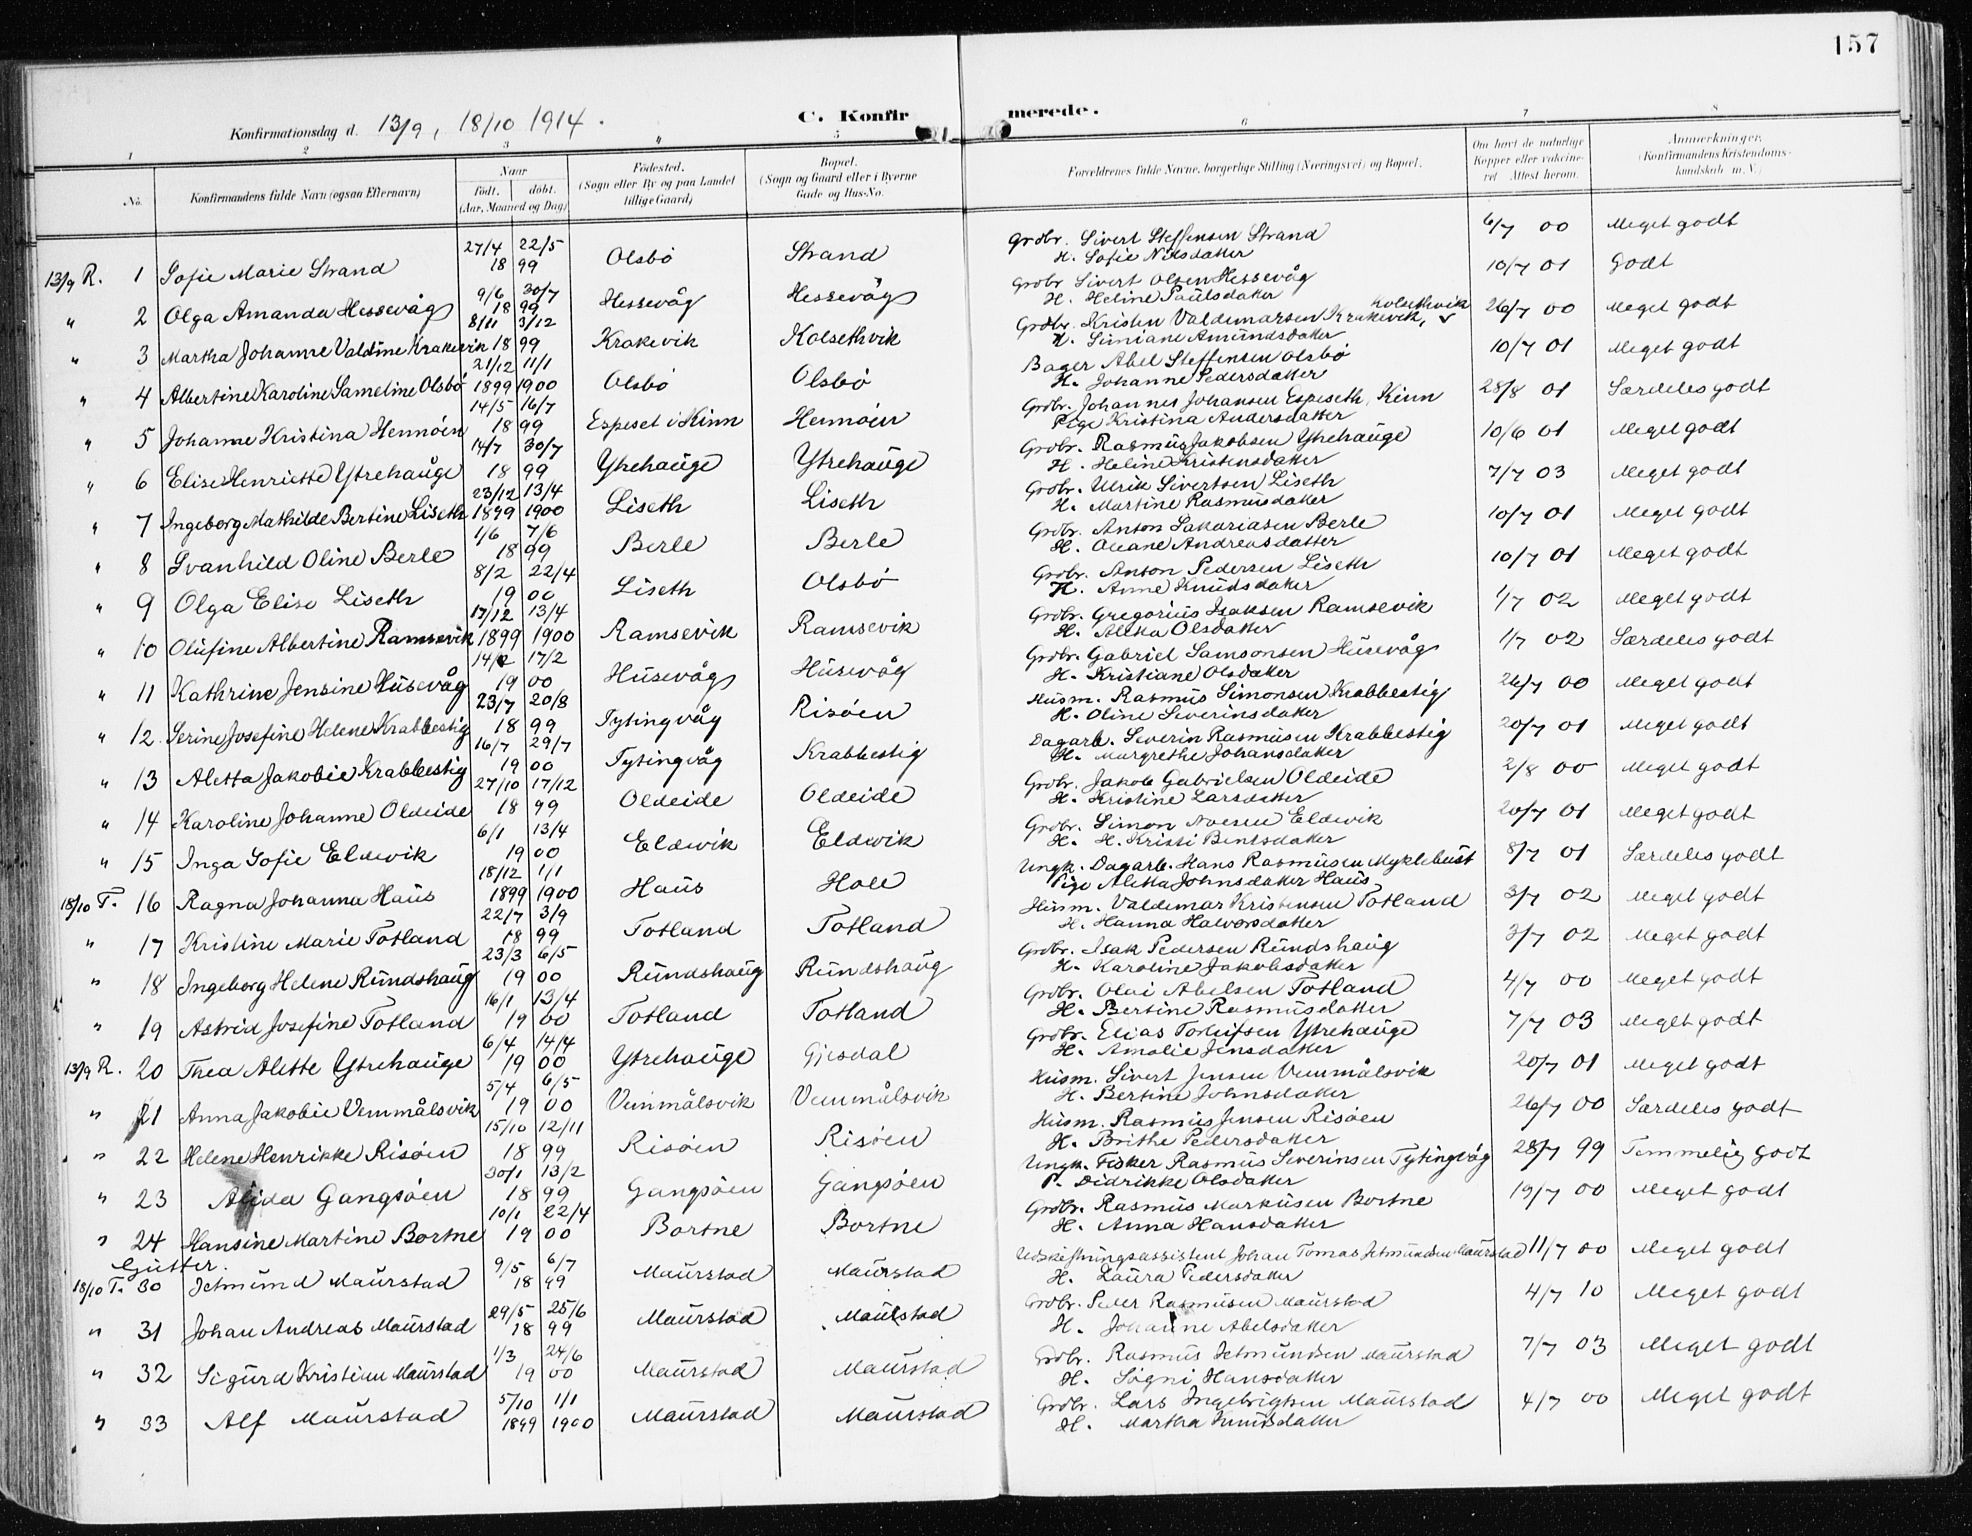 157
Konfirmationsdag d. 13/9, 18/10 1914.
C. Konfirmerede.
1 2 3 4 5 6 7 8
No. Konfirmandens fulde Navn (ogsaa Efternavn) Naar født. døbt. (Aar, Maaned og Dag) Fødested. (Sogn eller By og paa Landet tillige Gaard) Bopæl. (Sogn og Gaard eller i Byerne Gade og Hus-No. Forældrenes fulde Navne, borgerlige Stilling (Næringsvei) og Bopæl. Om havt de naturlige Kopper eller vaccineret Attest herom. Anmerkninger. (Konfirmandens Kristendomskundskab m. V.)
13/9 R. 1 Sofie Marie Strand 27/4 1899 22/5 Olsbö Strand Grdbr. Sivert Steffensen Strand H. Sofie Nilsdatter 6/7 00 Meget godt
" 2 Olga Amanda Hessevåg 9/6 1899 30/7 Hessevåg Hessevåg Grdbr. Sivert Olsen Hessevåg H. Heline Paulsdatter 10/7 01 Godt
" 3 Martha Johanne Valdine Krakevik 8/11 1899 3/12 Krakevik Kolsethvik Grdbr. Kristen Valdemarsen Krakevik, Kolsethvik H. Simiane Amundsdatter 26/7 00 Meget godt
" 4 Albertine Karoline Sameline Olsbö 21/12 1899 11/1 1900 Olsbö Olsbö Bager Abel Steffensen Olsbö H. Johanne Pedersdatter 10/7 01 Meget godt
" 5 Johanne Kristina Hennöen 14/5 1899 16/7 Espeset i Kinn Hennöen Grdbr. Johannes Johansen Espeseth, Kinn Pige Kristina Andersdatter 28/8 01 Særdeles godt
" 6 Elise Henriette Ytrehauge 14/7 1899 30/7 Ytrehauge Ytrehauge Grdbr. Rasmus Jakobsen Ytrehauge H. Heline Kristensdatter 10/6 01 Meget godt
" 7 Ingeborg Mathilde Bertine Liseth 23/12 1899 13/4 1900 Liseth Liseth Grdbr. Ulrik Sivertsen Liseth H. Martine Rasmusdatter 7/7 03 Meget godt
" 8 Svanhild Oline Berle 1/6 1899 7/6 Berle Berle Grdbr. Anton Sakariasen Berle H. Oleane Andreasdatter 10/7 01 Meget godt
" 9 Olga Elise Liseth 8/2 1900 22/4 Liseth Olsbö Grdbr. Anton Pedersen Liseth H. Anne Knudsdatter 10/7 01 Meget godt
" 10 Olufine Albertine Ramsevik 17/12 1899 13/4 1900 Ramsevik Ramsevik Grdbr. Gregorius Isaksen Ramsevik H. Aletta Olsdatter 1/7 02 Meget godt
" 11 Kathrine Jensine Husevåg 14/2 1900 17/2 Husevåg Husevåg Grdbr. Gabriel Samsonsen Husevåg H. Kristiane Olsdatter 1/7 02 Særdeles godt
" 12 Serine Josefine Helene Krabbestig 23/7 1899 20/8 Tytingvåg Risöen Husm. Rasmus Simonsen Krabbestig H. Oline Severinsdatter 26/7 00 Meget godt
" 13 Aletta Jakobie Krabbestig 16/7 1900 29/7 Tytingvåg Krabbestig Dagarb. Severin Rasmusen Krabbestig H. Margrethe Johansdatter 20/7 01 Meget godt
" 14 Karoline Johanne Oldeide 27/10 1899 17/12 Oldeide Oldeide Grdbr. Jakob Gabrielsen Oldeide H. Kristine Larsdatter 2/8 00 Meget godt
" 15 Inga Sofie Eldevik 6/1 1900 13/4 Eldevik Eldevik Grdbr. Simon Noesen Eldevik H. H. Kristi Bentsdatter 20/7 01 Meget godt
18/10 T. 16 Ragna Johanna Haus 18/12 1899 1/1 1900 Haus Hole Ungk. Dagarb. Hans Rasmusen Myklebust Pige Aletta Johnsdatter Haus 8/7 01 Særdeles godt
" 17 Kristine Marie Totland 22/7 1899 3/9 Totland Totland Husm. Valdemar Kristensen Totland H. Hanna Halvorsdatter 3/7 02 Meget godt
" 18 Ingeborg Helene Rundshaug 23/3 1900 6/5 Rundshaug Rundshaug Grdbr. Isak Pedersen Rundshaug H. Karoline Jakobsdatter 3/7 02 Meget godt
" 19 Astrid Josefine Totland 16/1 1900 13/4 Totland Totland Grdbr. Olai Abelsen Totland H. Bertine Rasmusdatter 4/7 00 Meget godt
13/9 R. 20 Thea Alette Ytrehauge 6/4 1900 14/4 Ytrehauge Gjesdal Grdbr. Elias Torleifsen Ytrehauge H. Amalie Jensdatter 7/7 03 Meget godt
" 21 Anna Jakobie Vemmålsvik 5/4 1900 6/5 Vemmålsvik Vemmålsvik Husm. Sivert Jensen Vemmålsvik H. Bertine Johnsdatter 20/7 01 Meget godt
" 22 Helene Henrikke Risöen 15/10 1899 12/11 Risöen Risöen Husm. Rasmus Jensen Risöen H. Brithe Pedersdatter 26/7 00 Særdeles godt
" 23 Alida Gangsöen 30/1 1899 13/2 Gangsöen Gangsöen Ungk. Fisker Rasmus Severinsen Tytingvåg P. Didrikke Olsdatter 28/7 99 Temmelig godt
" 24 Hansine Martine Bortne 10/1 1900 22/4 Bortne Bortne Grdbr. Rasmus Markusen Bortne H. Anna Hansdatter 19/7 00 Meget godt
Gutter.
18/10 T. 30 Jetmund Maurstad 9/5 1899 6/7 Maurstad Maurstad Udskiftningsassistent Johan Tomas Jetmundsen Maurstad H. Laura Pedersdatter 11/7 00 Meget godt
" 31 Johan Andreas Maurstad 29/5 1899 25/6 Maurstad Maurstad Grdbr. Peder Rasmusen Maurstad H. Johanne Abelsdatter 4/7 10 Meget godt
" 32 Sigurd Kristian Maurstad 1/3 1900 24/6 Maurstad Maurstad Grdbr. Rasmus Jetmundsen Maurstad H. Sögni Hansdatter 7/7 03 Meget godt
" 33 Alf Maurstad 5/10 1899 1/1 1900 Maurstad Maurstad Grdbr. Lars Ingebrigtsen Maurstad H. Martha 4/7 00 Meget godt